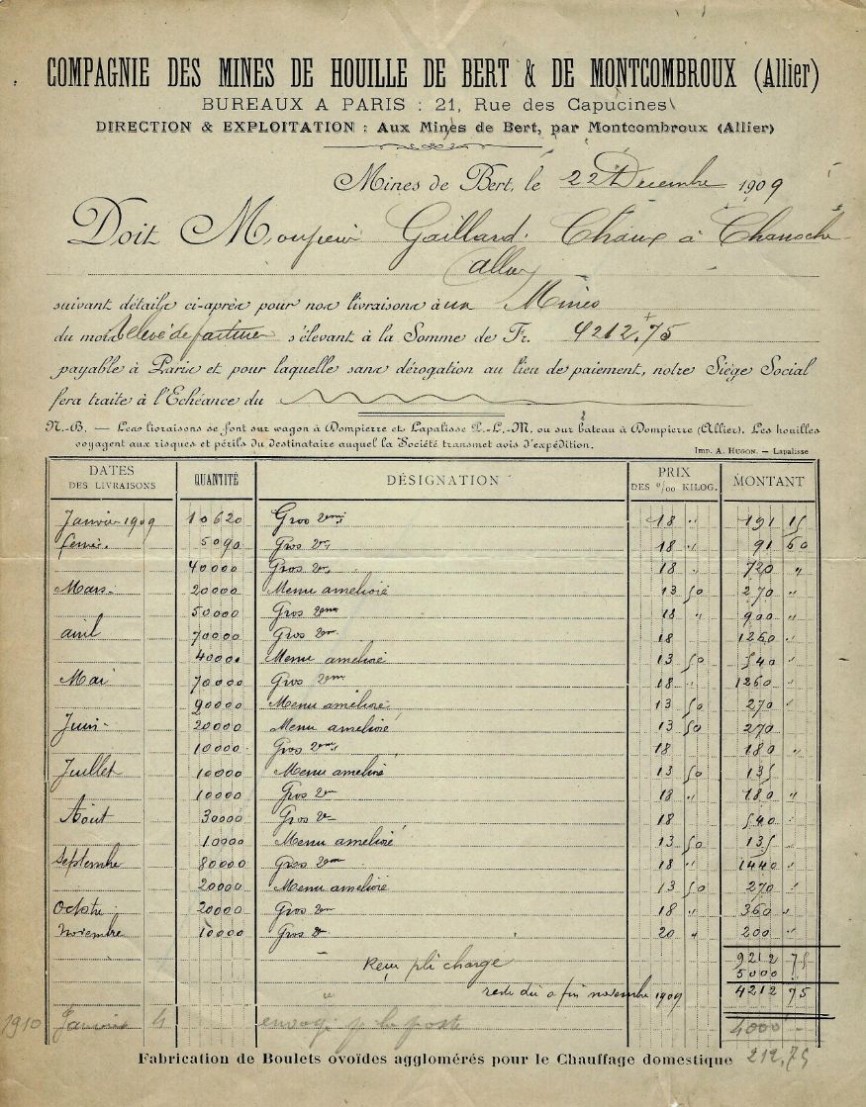 COMPAGNIE DES MINES DE HOUILLE DE BERT & DE MONTCOMBROUX (Allier)
BUREAUX A PARIS : 21, Rue des Capucines
DIRECTION & EXPLOITATION : Aux Mines de Bert, par Montcombroux (Allier)
Mines de Bert, le 22 Decembre 1909
Doit Monsieur Gaillard. Chaux à
Allier
suivant détails ci-après pour nos livraisons à ux Mines
du mois Relevé de facture s'élevant à la Somme de Fr. 4212.75
payable à Paris et pour laquelle sans dérogation au lieu de paiement, notre Siège Social
fera traite à l'Echéance du
N.-B. — Les livraisons se font sur wagon à Dompierre et Lapalisse P.-L.-M. ou sur bateau à Dompierre (Allier). Les houilles
voyagent aux risques et périls du destinataire auquel la Société transmet avis d'expédition.
Imp. A. Hugon. — Lapalisse
DATES DES LIVRAISONS QUANTITÉ DÉSIGNATION PRIX DES °/00 KILOG. MONTANT
Janvier 1909 10620 Gros 2eme 18 " 191 15
fevrier 5090 Gros 2e 18 " 91 60
40000 Gros 2e 18 " 720 "
Mars 20000 Menu amelioré 13 50 270 "
50000 Gros 2eme 18 " 900 "
avril 70000 Gros 2e 18 1260 "
40000 Menu amelioré 13 50 540 "
Mai 70000 Gros 2eme 18 " 1260 "
20000 Menu amelioré 13 50 270 "
Juin 20000 Menu amelioré 13 50 270
10000 Gros 2eme 18 180 "
Juillet 10000 Menu amelioré 13 50 135
10000 Gros 2e 18 " 180 "
Aout 30000 Gros 2e 18 540 "
10000 Menu amelioré 13 50 135 "
Septembre 80000 Gros 2eme 18 " 1440 "
20000 Menu amelioré 13 50 270 "
Octobre 20000 Gros 2e 18 " 360 "
Novembre 10000 Gros 2e 20 " 200 "
9212 75
Reçu pli chargé 5000 "
reste dû a fin novembre 1909 4212 75
1910 Janvier 4 envoyé p la poste 4000 -
Fabrication de Boulets ovoïdes agglomérés pour le Chauffage domestique
212,75